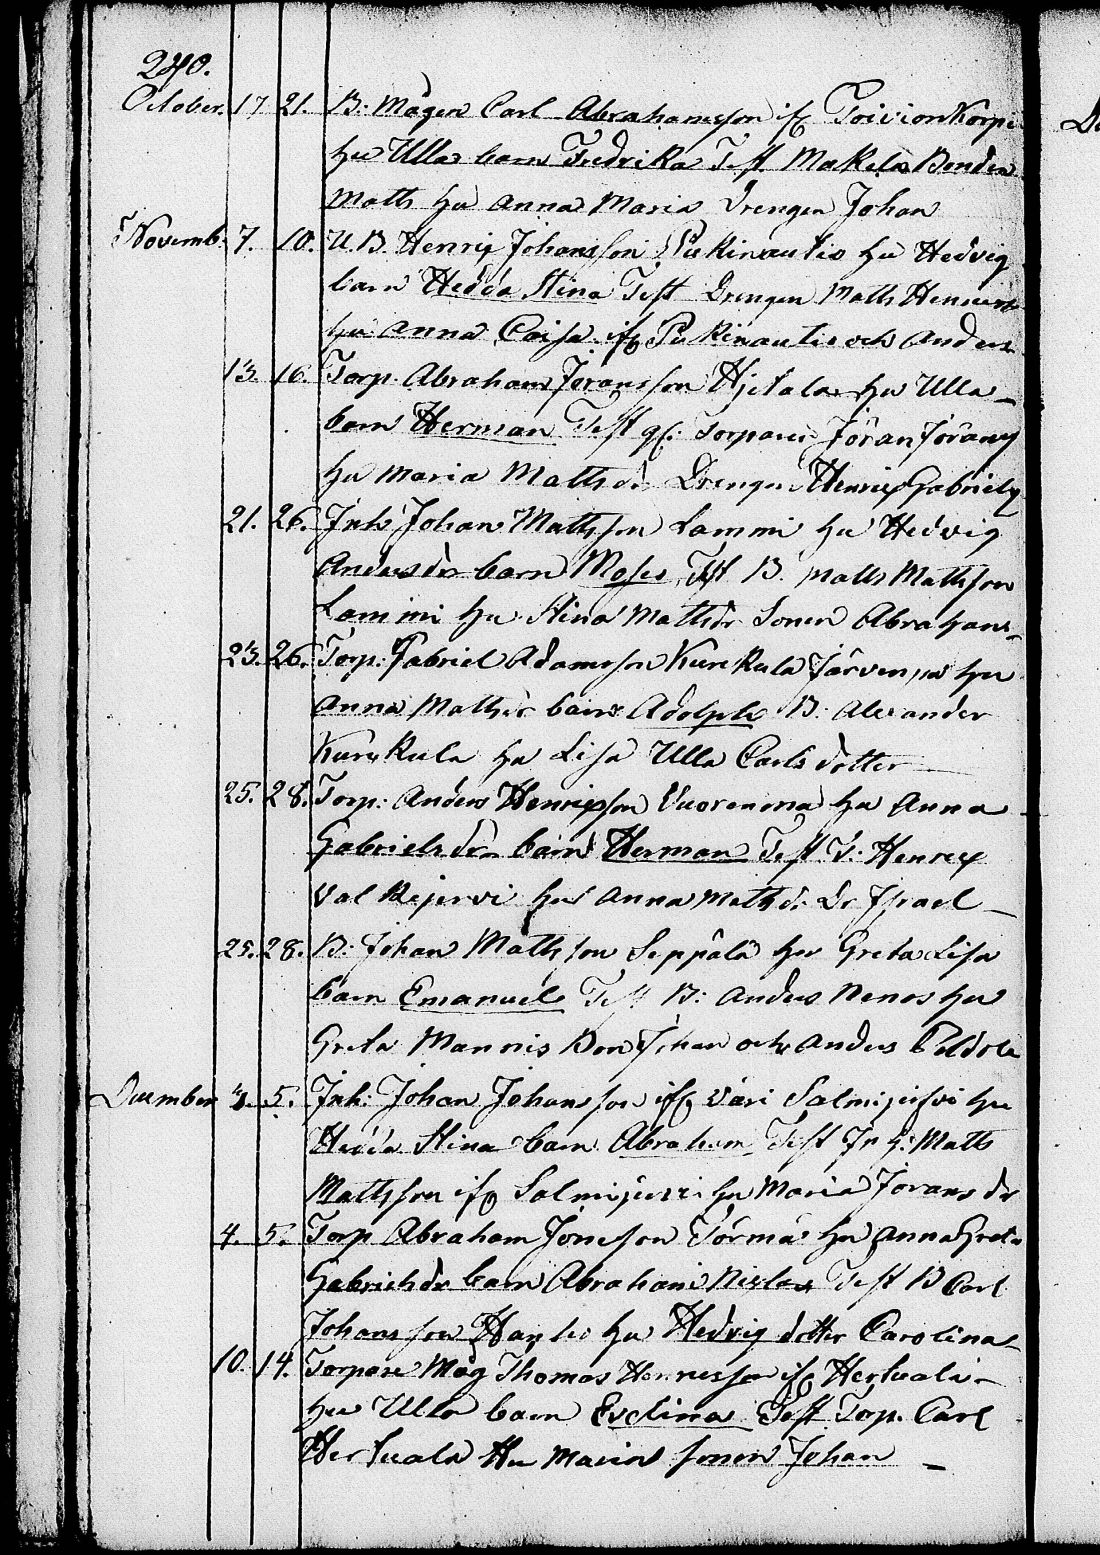 240.
October. 17 21. B: Mågen Carl Abrahamsson if Toivionkorpi
hu Ulla barn Fredrika Test. Makela Bonden
Matts hu Anna Maria Drengen Johan
Novemb. 7. 10. U. B. Henrix Johansson Pukinautio hu Hedvig
barn Hedda Stina Test Drengen Matts
hu Anna Caisa if Pukinautio och Anders
13. 16. Torp. Abraham Joransson Hjetala hu Ulla
barn Herman Test gl: Torparen Jöran Jörans
hu Maria Mattsdr Drengen Henrix Gabriels
21. 26. Inh Johan Mattsson Lammi hu Hedvig
Andersdr barn Moses Test B. Matts Mattsson
Lammi hu Stina Matsdr Sonen Abraham
23. 26. Torp. Gabriel Adamsson Kurckula Järvenpä hu
Anna Mattsdr barn Adolph B. Alexander
Kurckula hu Lisa Ulla Carlsdotter
25. 28. Torp: Anders Henrixson Vuorenma hu Anna
Gabrielsdr barn Herman Test T. Henrex
Valkejervi hu Anna Matsdr Dr Israel
25. 28. B: Johan Mattsson Seppälä hu Greta Lisa
barn Emanuel Test B: Anders Nenos hu
Greta Mannis Bon Johan och Anders
December 3. 5. Inh: Johan Johansson if Vari Salmijerfvi hu
Hedda Stina barn Abraham Test In h: Matts
Mattsson if Salmijervi hu Maria Joransdr
4. 5. Torp Abraham Jönsson Törmä hu Anna Greta
Gabrielsdr barn Abraham Niclas Test B Carl
Johansson hu Hedvig dotter Carolina
10. 14. Torpare Måg Thomas Henricsson if Hertuala
hu Ulla barn Evelina Test Torp. Carl
Hertuala Hu Maria sonen Johan